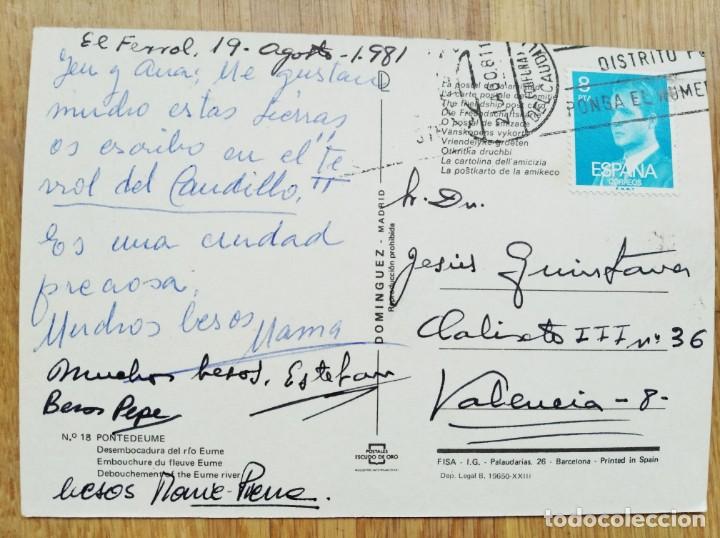 El Ferrol, 19 - agosto - 1.981
Jen y Ana; Me gustan
mucho estas tierras
os escribo en el "Fe
rrol del Caudillo."
Es una ciudad
preciosa;
Muchos besos Mama
Muchos besos, Esteban
Besos Pepe
N.º 18 PONTEDEUME
Desembocadura del río Eume
Embouchure du fleuve Eume
Debouchement of the Eume river
besos Marie-Pierre.
DOMINGUEZ - MADRID
Reproducción prohibida
POSTALES
ESCUDO DE ORO
DISTRITO P
PONGA EL NUMER
DEL CAUDI
La postal de la amistad
La carte postale de l'amitié
The friendship post card
Die Freundschafts
O postal de amizade
Vänskapens vykort
Vriendelijke groeten
Otkritka druchbi
La cartolina dell'amicizia
La poŝtkarto de la amikeco
8
PTA
ESPAÑA
CORREOS
Sr. Dn.
Jesús Quintana
Calixto III nº 36
Valencia - 8 -
FISA - I.G. - Palaudarias, 26 - Barcelona - Printed in Spain
Dep. Legal B. 19650-XXIII
todocoleccion